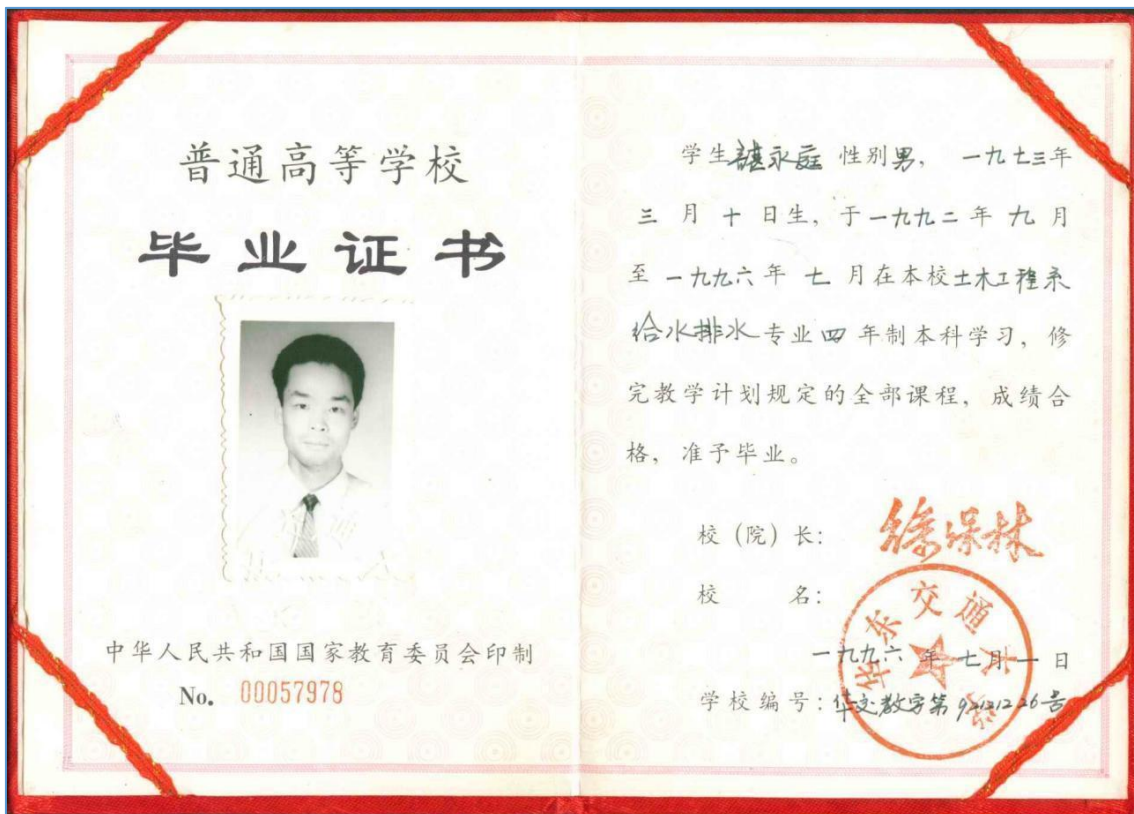 普通高等学校
毕业证书
中华人民共和国国家教育委员会印制
No. 00057978
学生谌永庭 性别男, 一九七三年
三月十日生, 于一九九二年九月
至一九九六年七月在本校土木工程系
给水排水专业四年制本科学习, 修
完教学计划规定的全部课程, 成绩合
格, 准予毕业。
校(院)长: 徐保林
校 名:
华东交通大学
一九九六年七月一日
学校编号: 华交教字第92121226号